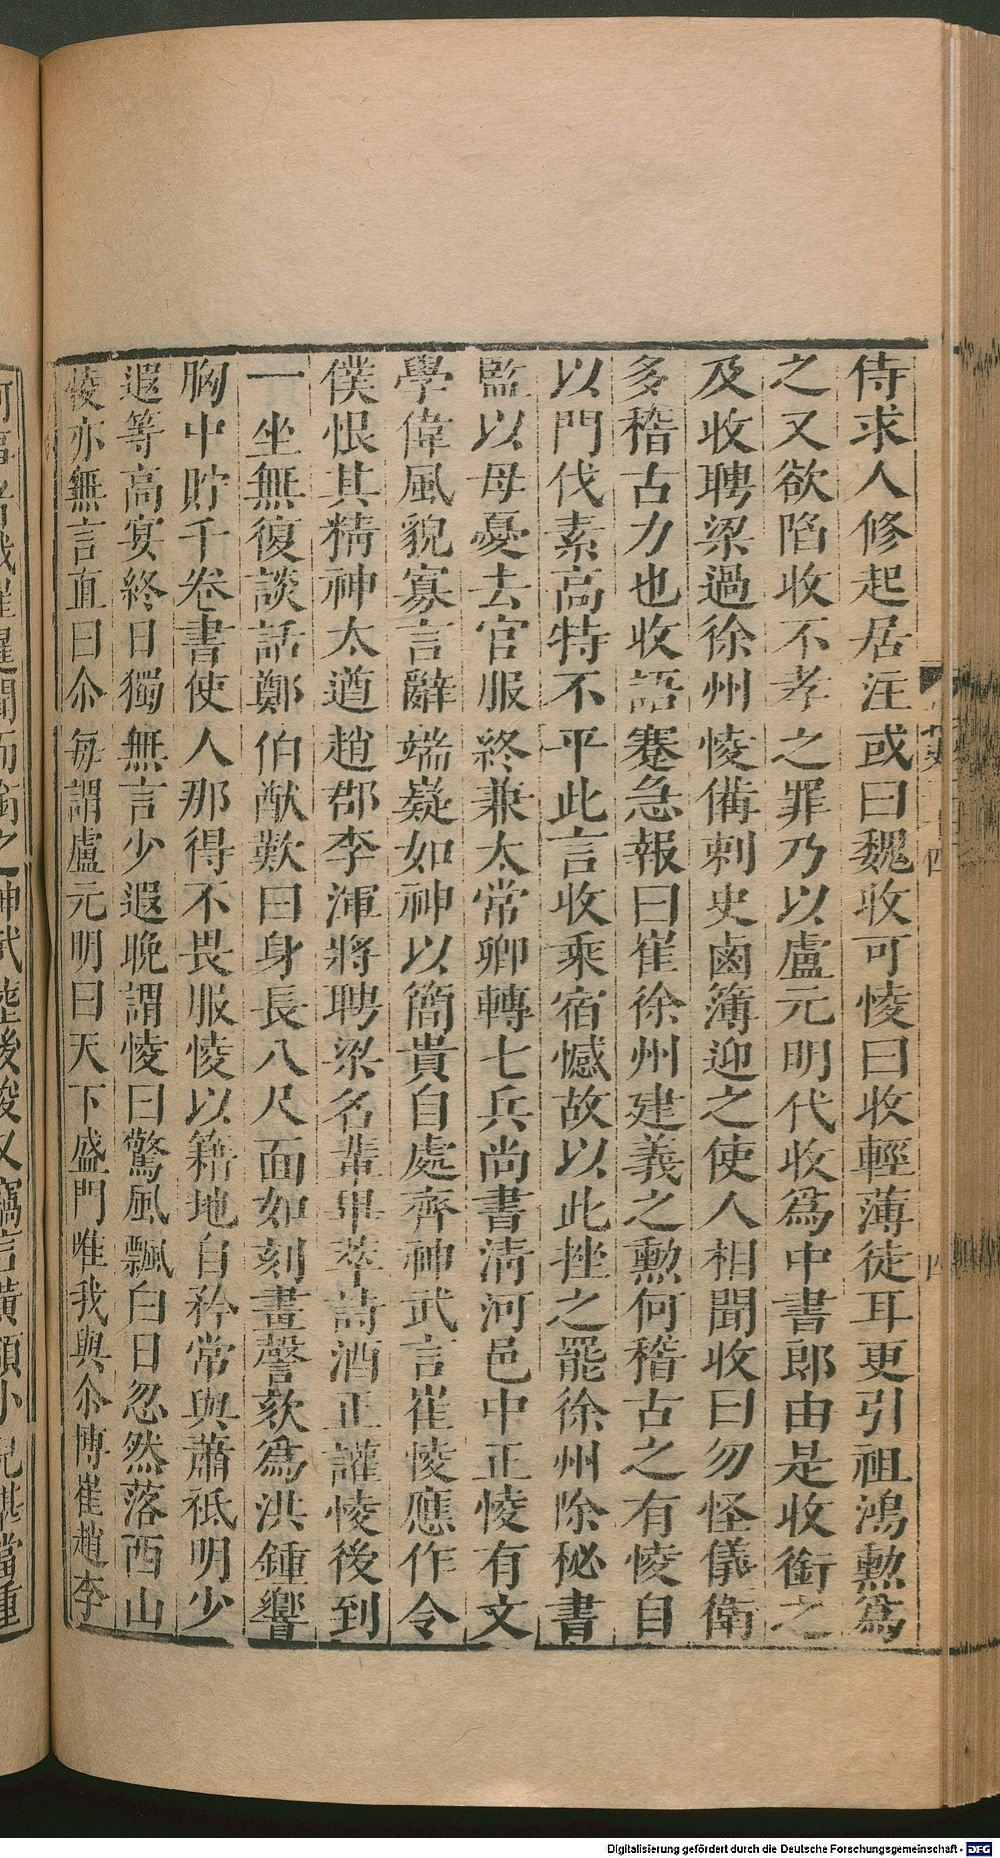 侍求人修起居注或曰魏收可㥄曰收輕薄徒耳更引祖鴻勲爲
之又欲陷收不孝之罪乃以盧元明代收爲中書郎由是收銜之
及收聘梁過徐州㥄備刺史鹵簿迎之使人相聞收曰勿怪儀衛
多稽古力也收語蹇急報曰崔徐州建義之勲何稽古之有㥄自
以門伐素高特不平此言收乘宿憾故以此挫之罷徐州除秘書
監以母憂去官服終兼太常卿轉七兵尚書清河邑中正㥄有文
學偉風貌寡言辭端嶷如神以簡貴自處齊神武言崔㥄應作令
僕恨其精神太遒趙郡李渾將聘梁名輩畢萃詩酒正讙㥄後到
一坐無復談話鄭伯猷歎曰身長八尺面如刻畫謦欬爲洪鍾響
胸中貯千卷書使人那得不畏服㥄以籍地自矜常與蕭祗明少
遐等高宴終日獨無言少遐晚謂㥄曰驚風飄白日忽然落西山
㥄亦無言直曰尒每謂盧元明曰天下盛門唯我與尒博崔趙李
Digitalisierung gefördert durch die Deutsche Forschungsgemeinschaft - DFG